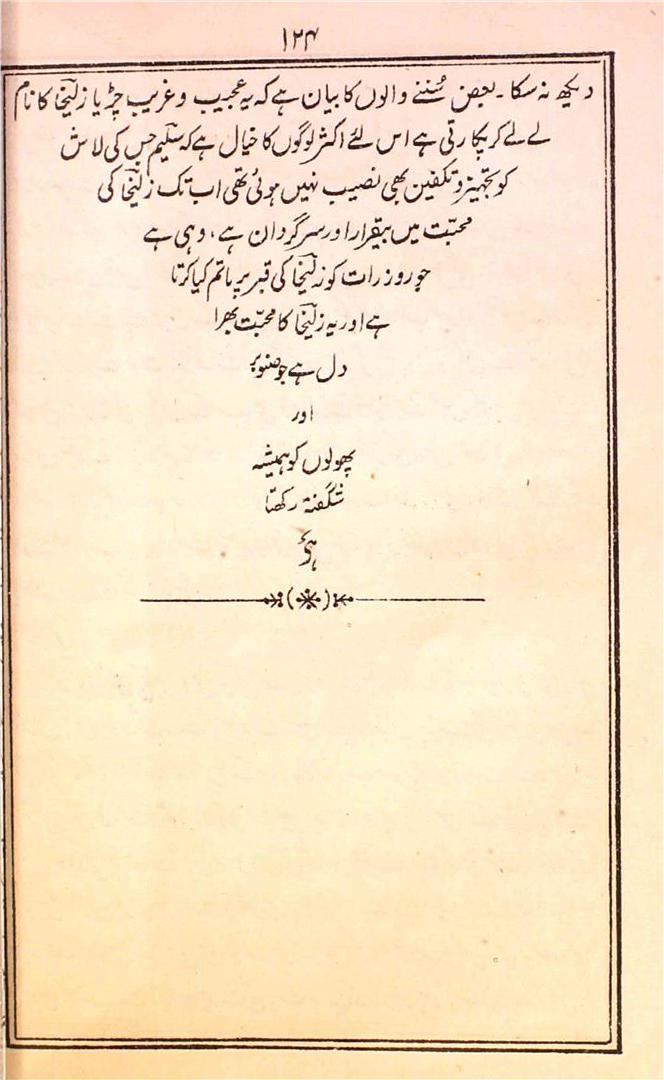 ۱۲۴
دیکھ نہ سکا۔ بعض سُننے والوں کا بیان ہے کہ یہ عجیب و غریب چڑیا زلیخا کا نام
لے لے کر پکارتی ہے اس لئے اکثر لوگوں کا خیال ہے کہ سلیم جس کی لاش
کو تجہیز و تکفین بھی نصیب نہیں ہوئی تھی اب تک زلیخا کی
محبّت میں بیقرار اور سرگردان ہے، وہی ہے
جو روز رات کو زلیخا کی قبر پر ماتم کیا کرتا
ہے اور یہ زلیخا کا محبّت بھرا
دل ہے جو صنوبر
اور
پھولوں کو ہمیشہ
شگفتہ رکھتا
ہے